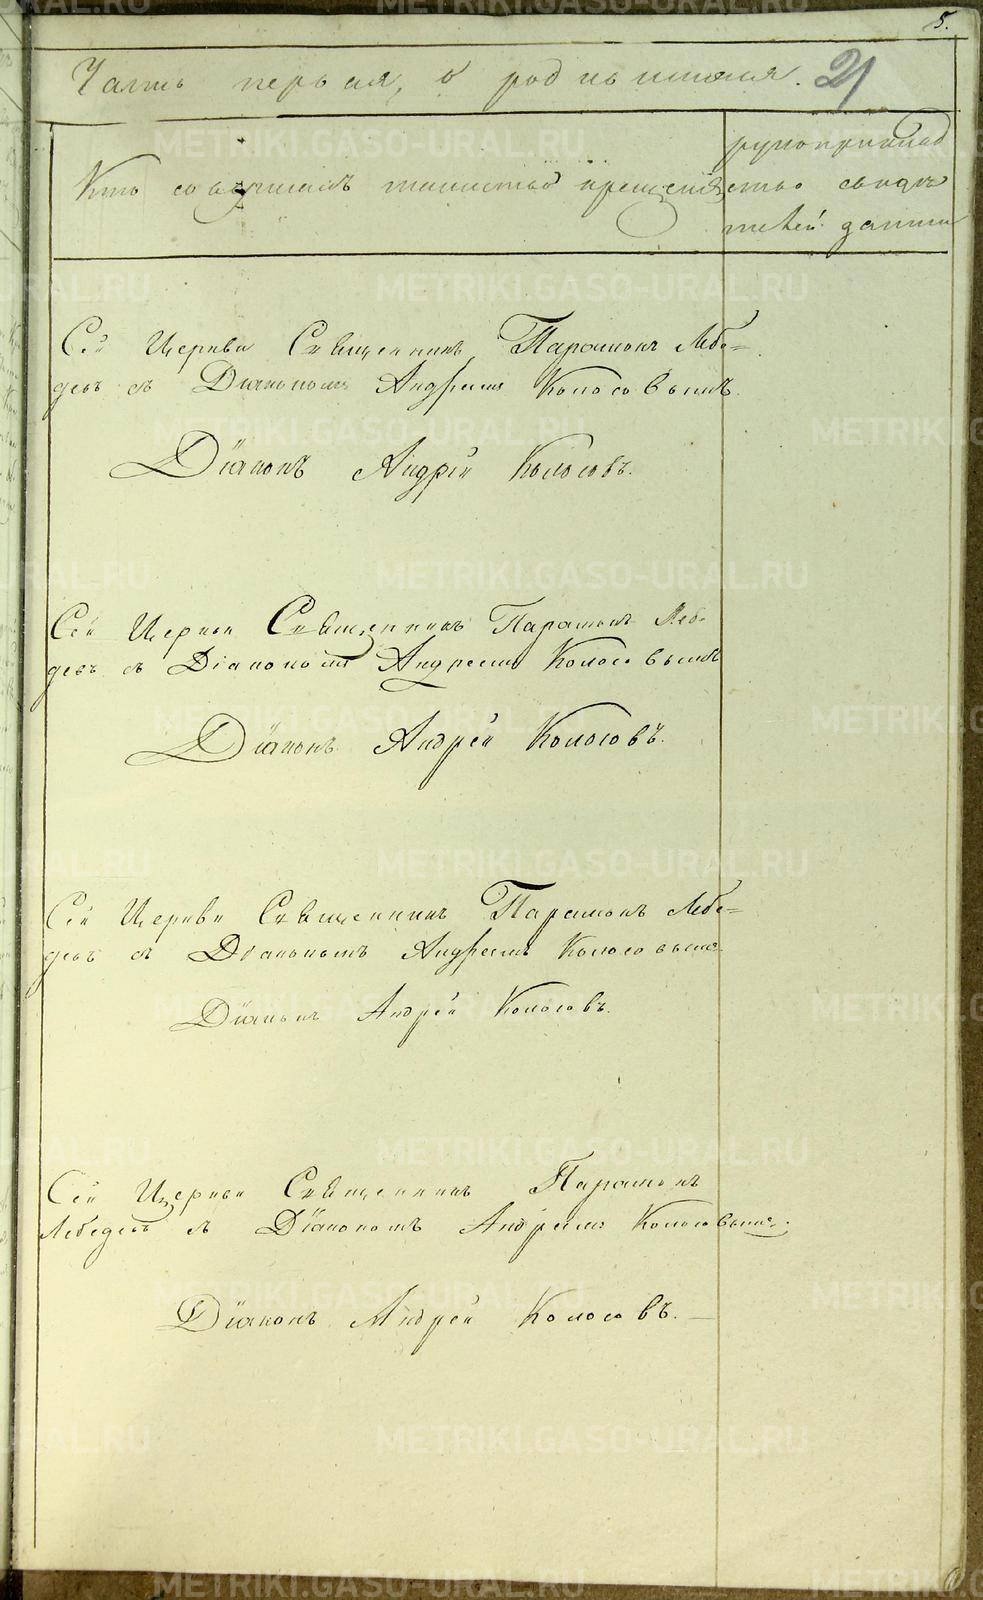 5.
Часть первая, о родившихся. 21
Кто совершалъ таинство крещенія
рукоприклад
ство свидѣ
телей записи
Сей Церкви Священникъ Парамонъ Лебе=
девъ съ Діакономъ Андреемъ Колосовымъ.
Діаконъ Андрей Колосовъ.
Сей Церкви Священникъ Парамонъ Лебе
девъ съ Діакономъ Андреемъ Колосовымъ
Діаконъ Андрей Колосовъ.
Сей Церкви Священникъ Парамонъ Лебе=
девъ съ Діакономъ Андреемъ Колосовымъ
Діаконъ Андрей Колосовъ.
Сей Церкви Священникъ Парамонъ
Лебедевъ съ Діакономъ Андреемъ Колосовымъ.
Діаконъ Андрей Колосовъ.
METRIKI.GASO-URAL.RU